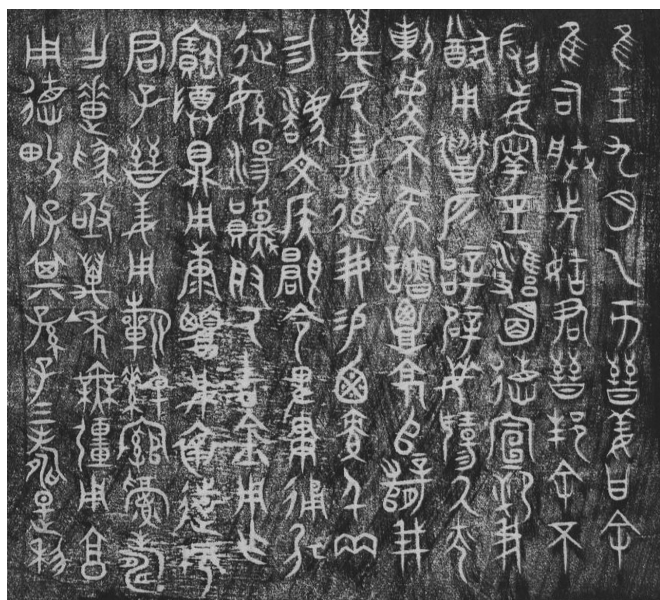 隹王九月乙亥晉姜曰余
隹司朕先姑君晉邦余不
叚妄寧巠雝明德宣卹我
猷用召匹辝辟敏揚氒光
剌虔不墜魯覃京師辥我
萬民嘉遣我易鹵積千兩
勿廢文侯顯令卑貫通弘
征繁湯取氒吉金用乍
寶尊鼎用康柔妥懷遠邇
君子晉姜用祈綽綰眉壽
乍疐為亟萬年無疆用享
用德畯保其孫子三壽是利